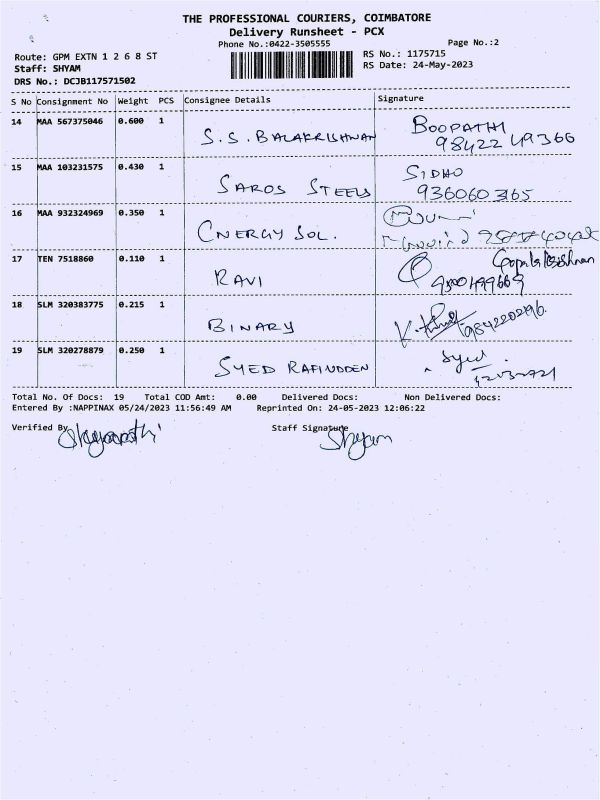 THE PROFESSIONAL COURIERS, COIMBATORE
Delivery Runsheet - PCX
Phone No.:0422-3505555 Page No.:2
Route: GPM EXTN 1 2 6 8 ST RS No.: 1175715
Staff: SHYAM RS Date: 24-May-2023
DRS No.: DCJB117571502
S No Consignment No Weight PCS Consignee Details Signature
14 MAA 567375046 0.600 1 S.S. BALAKRISHNAN BOOPATHI
98422 49366
15 MAA 103231575 0.430 1 SAROS STEELS SIDHO
9360603165
16 MAA 932324969 0.350 1 ENERGY SOL.
17 TEN 7518860 0.110 1 RAVI Gopalakrishnan
18 SLM 320383775 0.215 1 BINARY
19 SLM 320278879 0.250 1 SYED RAFIUDDEN Syed
Total No. Of Docs: 19 Total COD Amt: 0.00 Delivered Docs: Non Delivered Docs:
Entered By :NAPPINAX 05/24/2023 11:56:49 AM Reprinted On: 24-05-2023 12:06:22
Verified By Staff Signature
Shyam